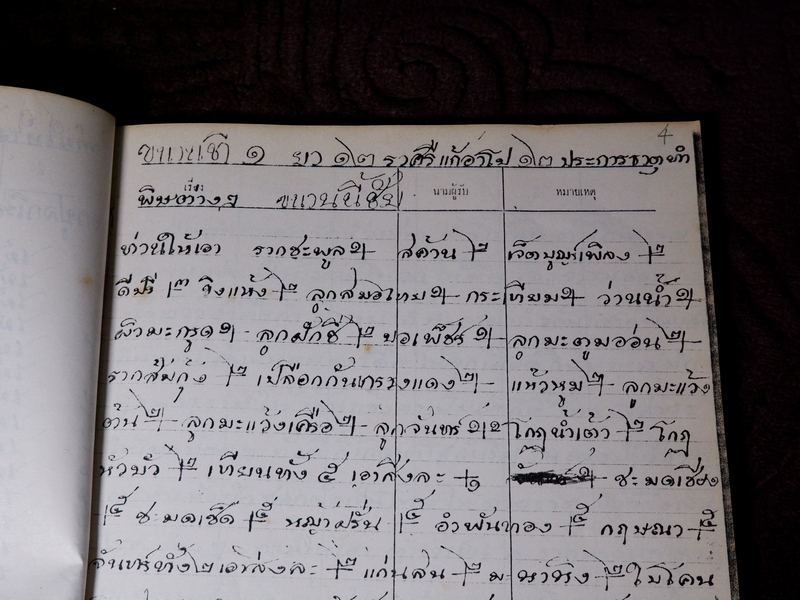 4
ขนานเชิ ๑ ยา ๑๒ ราศรี แก้อาโป ๑๒ ประการธาตุทำ
เรื่อง นามผู้รับ หมายเหตุ
พิษต่างๆ ขนานนี้ชื่อ
ท่านให้เอา รากชะพูล ๒ สค้าน ๒ เจ็ตมูลเพลิง ๒
ดีปลี ๓ จิงแห้ง ๒ ลูกสมอไทย ๑ กระเทียม ๑ ว่านน้ำ ๑
ผิวมะกรูด ๑ ลูกผักชี ๒ บอเพ็ชร์ ๑ ลูกมะตูมออ่น ๒
รากส้มกุ้ง ๒ เปลือกกันเกรา แดง ๒ แห้วหมู ๒ ลูกมะแว้ง
ต้น ๒ ลูกมะแว้งเครือ ๒ ลูกจันทร์ โกฎน้ำเต้า ๒ โกฎ
หัวบัว ๒ เทียนทั้ง ๕ เอาสิ่งละ ๑ ชะมดเชียง
๕ ชะมดเช็ด ๕ หญ้าฝรั่น ๕ อำพันทอง ๕ กฤษณา ๕
จันทร์ทั้ง ๒ เอาสิ่งละ ๒ แก่นสน ๒ ๒ ใบโคน